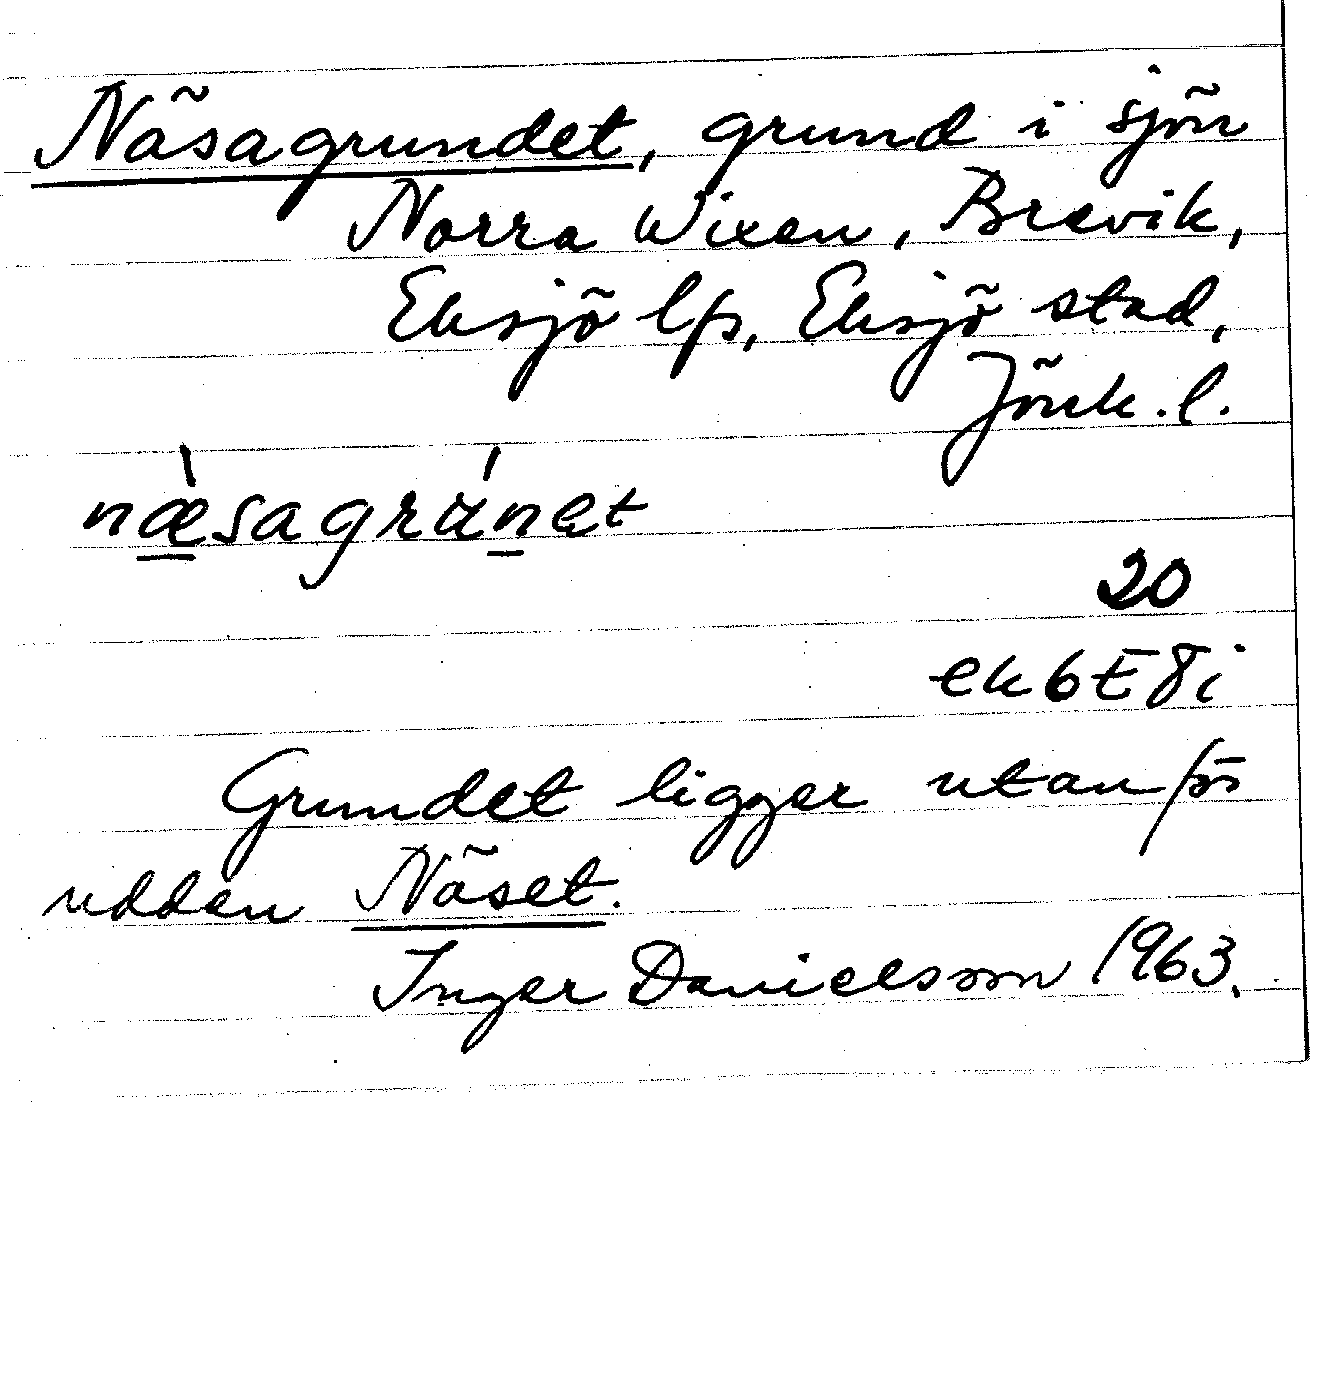 Näsagrundet, grund i sjön
Norra Wixen, Brevik,
Eksjö lfs, Eksjö stad,
Jönk.l.
næ̀sagrúnet
20
ek 6E8i
Grundet ligger utanför
udden Näset.
Inger Danielsson 1963.